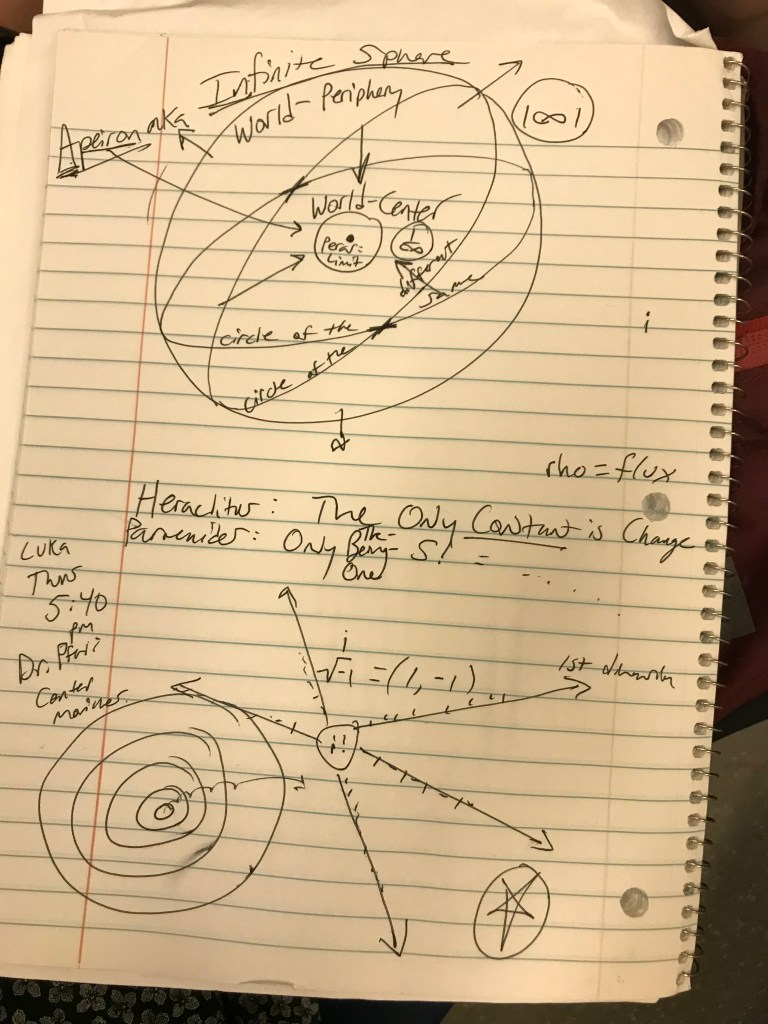 Infinite Sphere
World-Periphery
Apeiron aka
1∞1
World-Center
Peras=
Limit
∞
different
same
circle of the
circle of the
i
rho = flux
Heraclitus: The Only Constant is Change
Parmenides: Only The-Being-One S! =
Luka
Thurs
5:40
pm
Dr.
Center
i
√-1 = (1, -1)
1st
!!